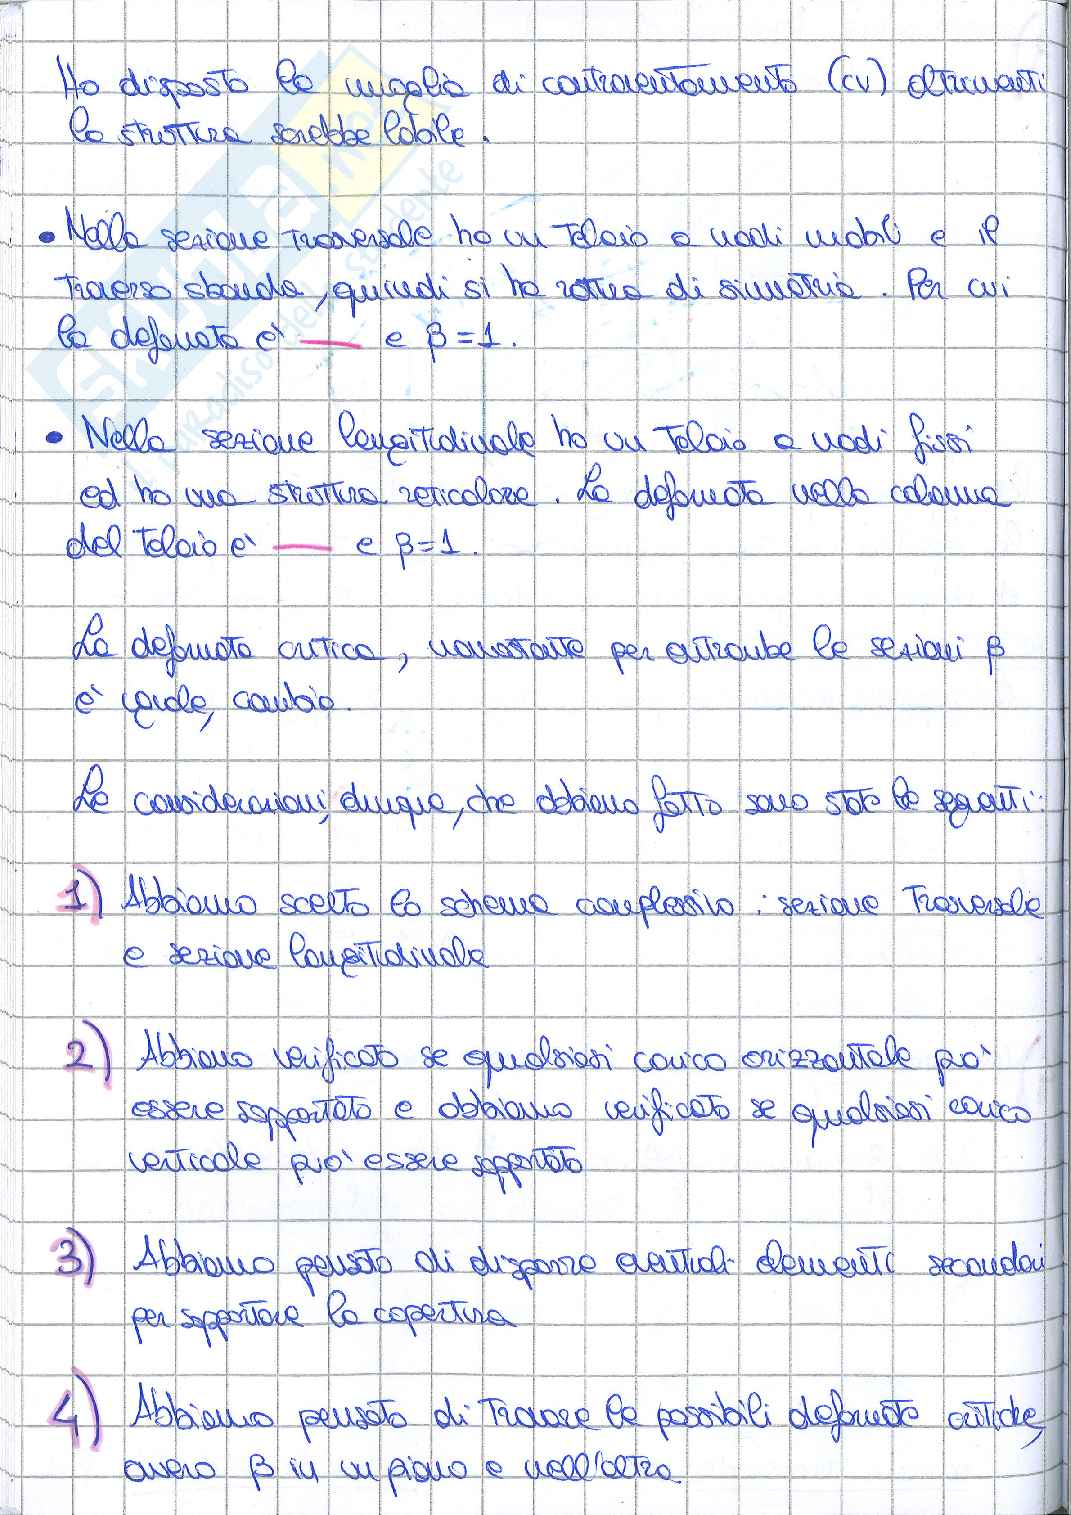 Ho disposto le maglie di controventamento (CV) altrimenti
la struttura sarebbe labile.
• Nella sezione trasversale ho un telaio a nodi mobili e il
traverso sbanda, quindi si ha rottura di simmetria. Per cui
la deformata è — e β=1.
• Nella sezione longitudinale ho un telaio a nodi fissi
ed ho una struttura reticolare. La deformata nella colonna
del telaio è — e β=1.
La deformata critica, nonostante per entrambe le sezioni β
è uguale, cambia.
Le considerazioni, dunque, che abbiamo fatto sono state le seguenti:
1) Abbiamo scelto lo schema complessivo: sezione trasversale
e sezione longitudinale
2) Abbiamo verificato se qualsiasi carico orizzontale può
essere sopportato e abbiamo verificato se qualsiasi carico
verticale può essere sopportato
3) Abbiamo pensato di disporre eventuali elementi secondari
per sopportare la copertura
4) Abbiamo pensato di trovare le possibili deformate critiche,
ovvero β in un piano e nell'altro
SKUOLA.net
il paradiso dello studente